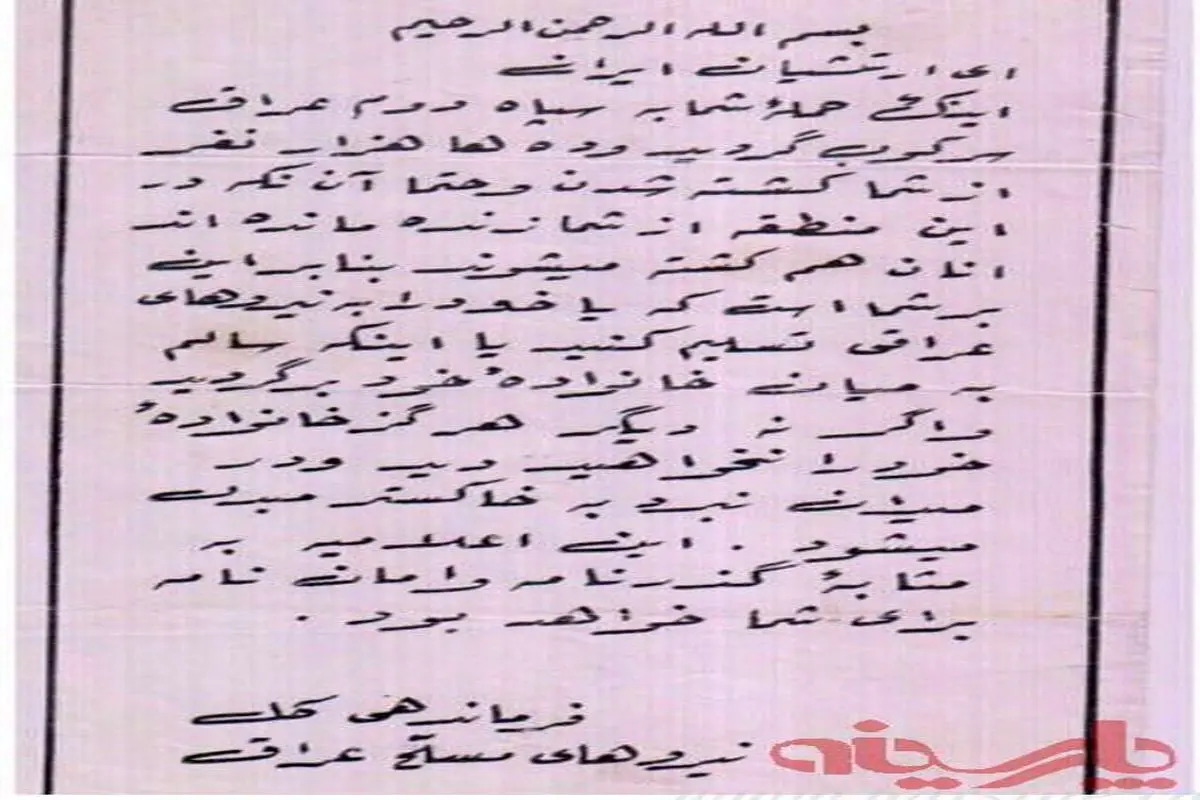 بسم الله الرحمن الرحیم
ای ارتشیان ایران
اینک حملهٔ شما به سپاه دوم عراق
سرکوب گردید و ده ها هزار نفر
از شما کشته شدن و حتما آن نکه در
این منطقه از شما زنده مانده اند
انان هم کشته میشوند بنابراین
بر شما است که یا خود را به نیروهای
عراقی تسلیم کنید یا اینکه سالم
به میان خانوادهٔ خود برگردید
واگر نه دیگر هرگز خانوادهٔ
خود را نخواهید دید ودر
میدان نبرد به خاکستر مبدل
میشود . این اعلامیه به
مثابهٔ گذرنامه وامان نامه
برای شما خواهد بود .
فرماندهی کل
نیروهای مسلح عراق
پارسینه